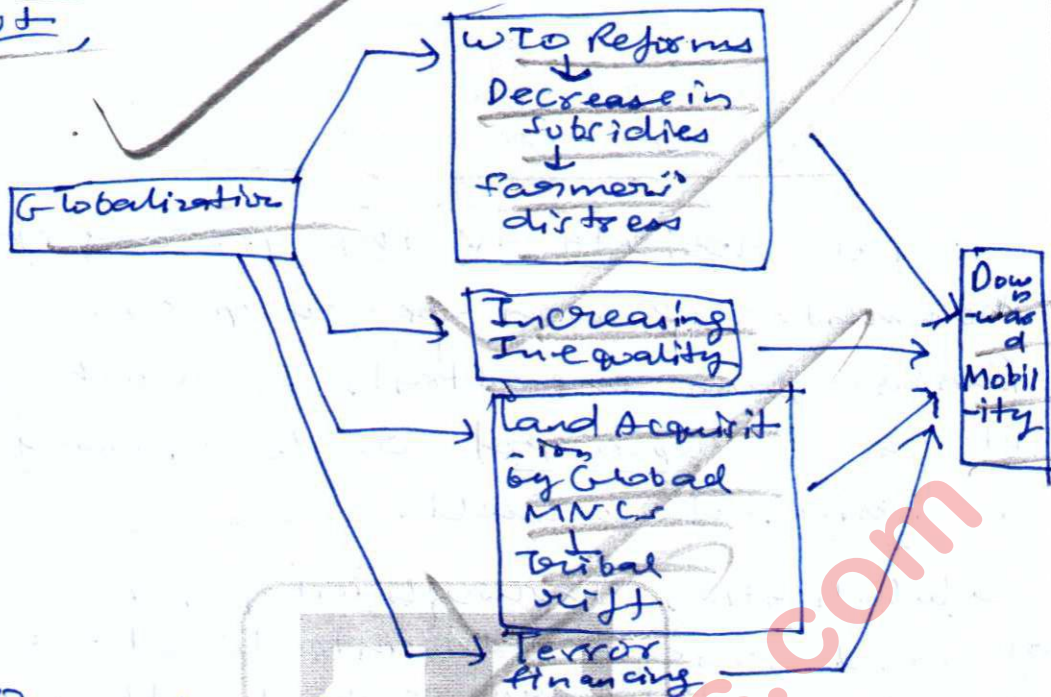 Globalization
WTO Reforms
↓
Decrease in
subsidies
↓
farmers'
distress
Increasing
Inequality
Land Acquisit
-ion
by Global
MNCs
↓
Tribal
rift
Terror
financing
Dow
n
-war
d
Mobil
-ity
.com